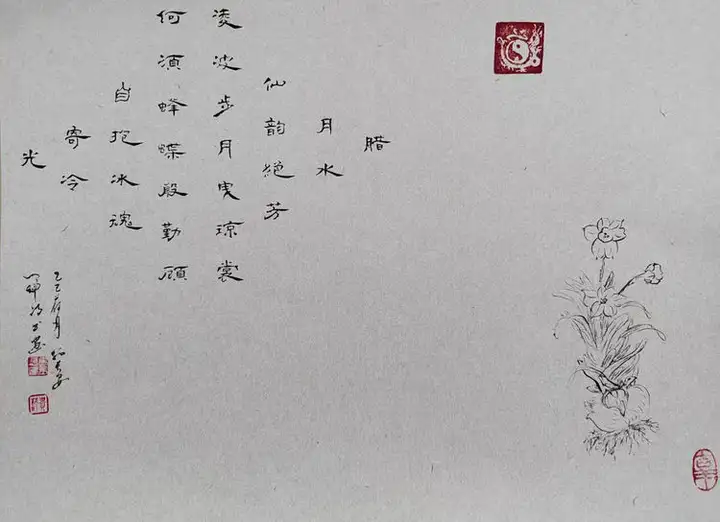 腊
月水
仙韵绝芳
凌波步月曳琼裳
何须蜂蝶殷勤顾
自抱冰魂
寄冷
光
乙巳月